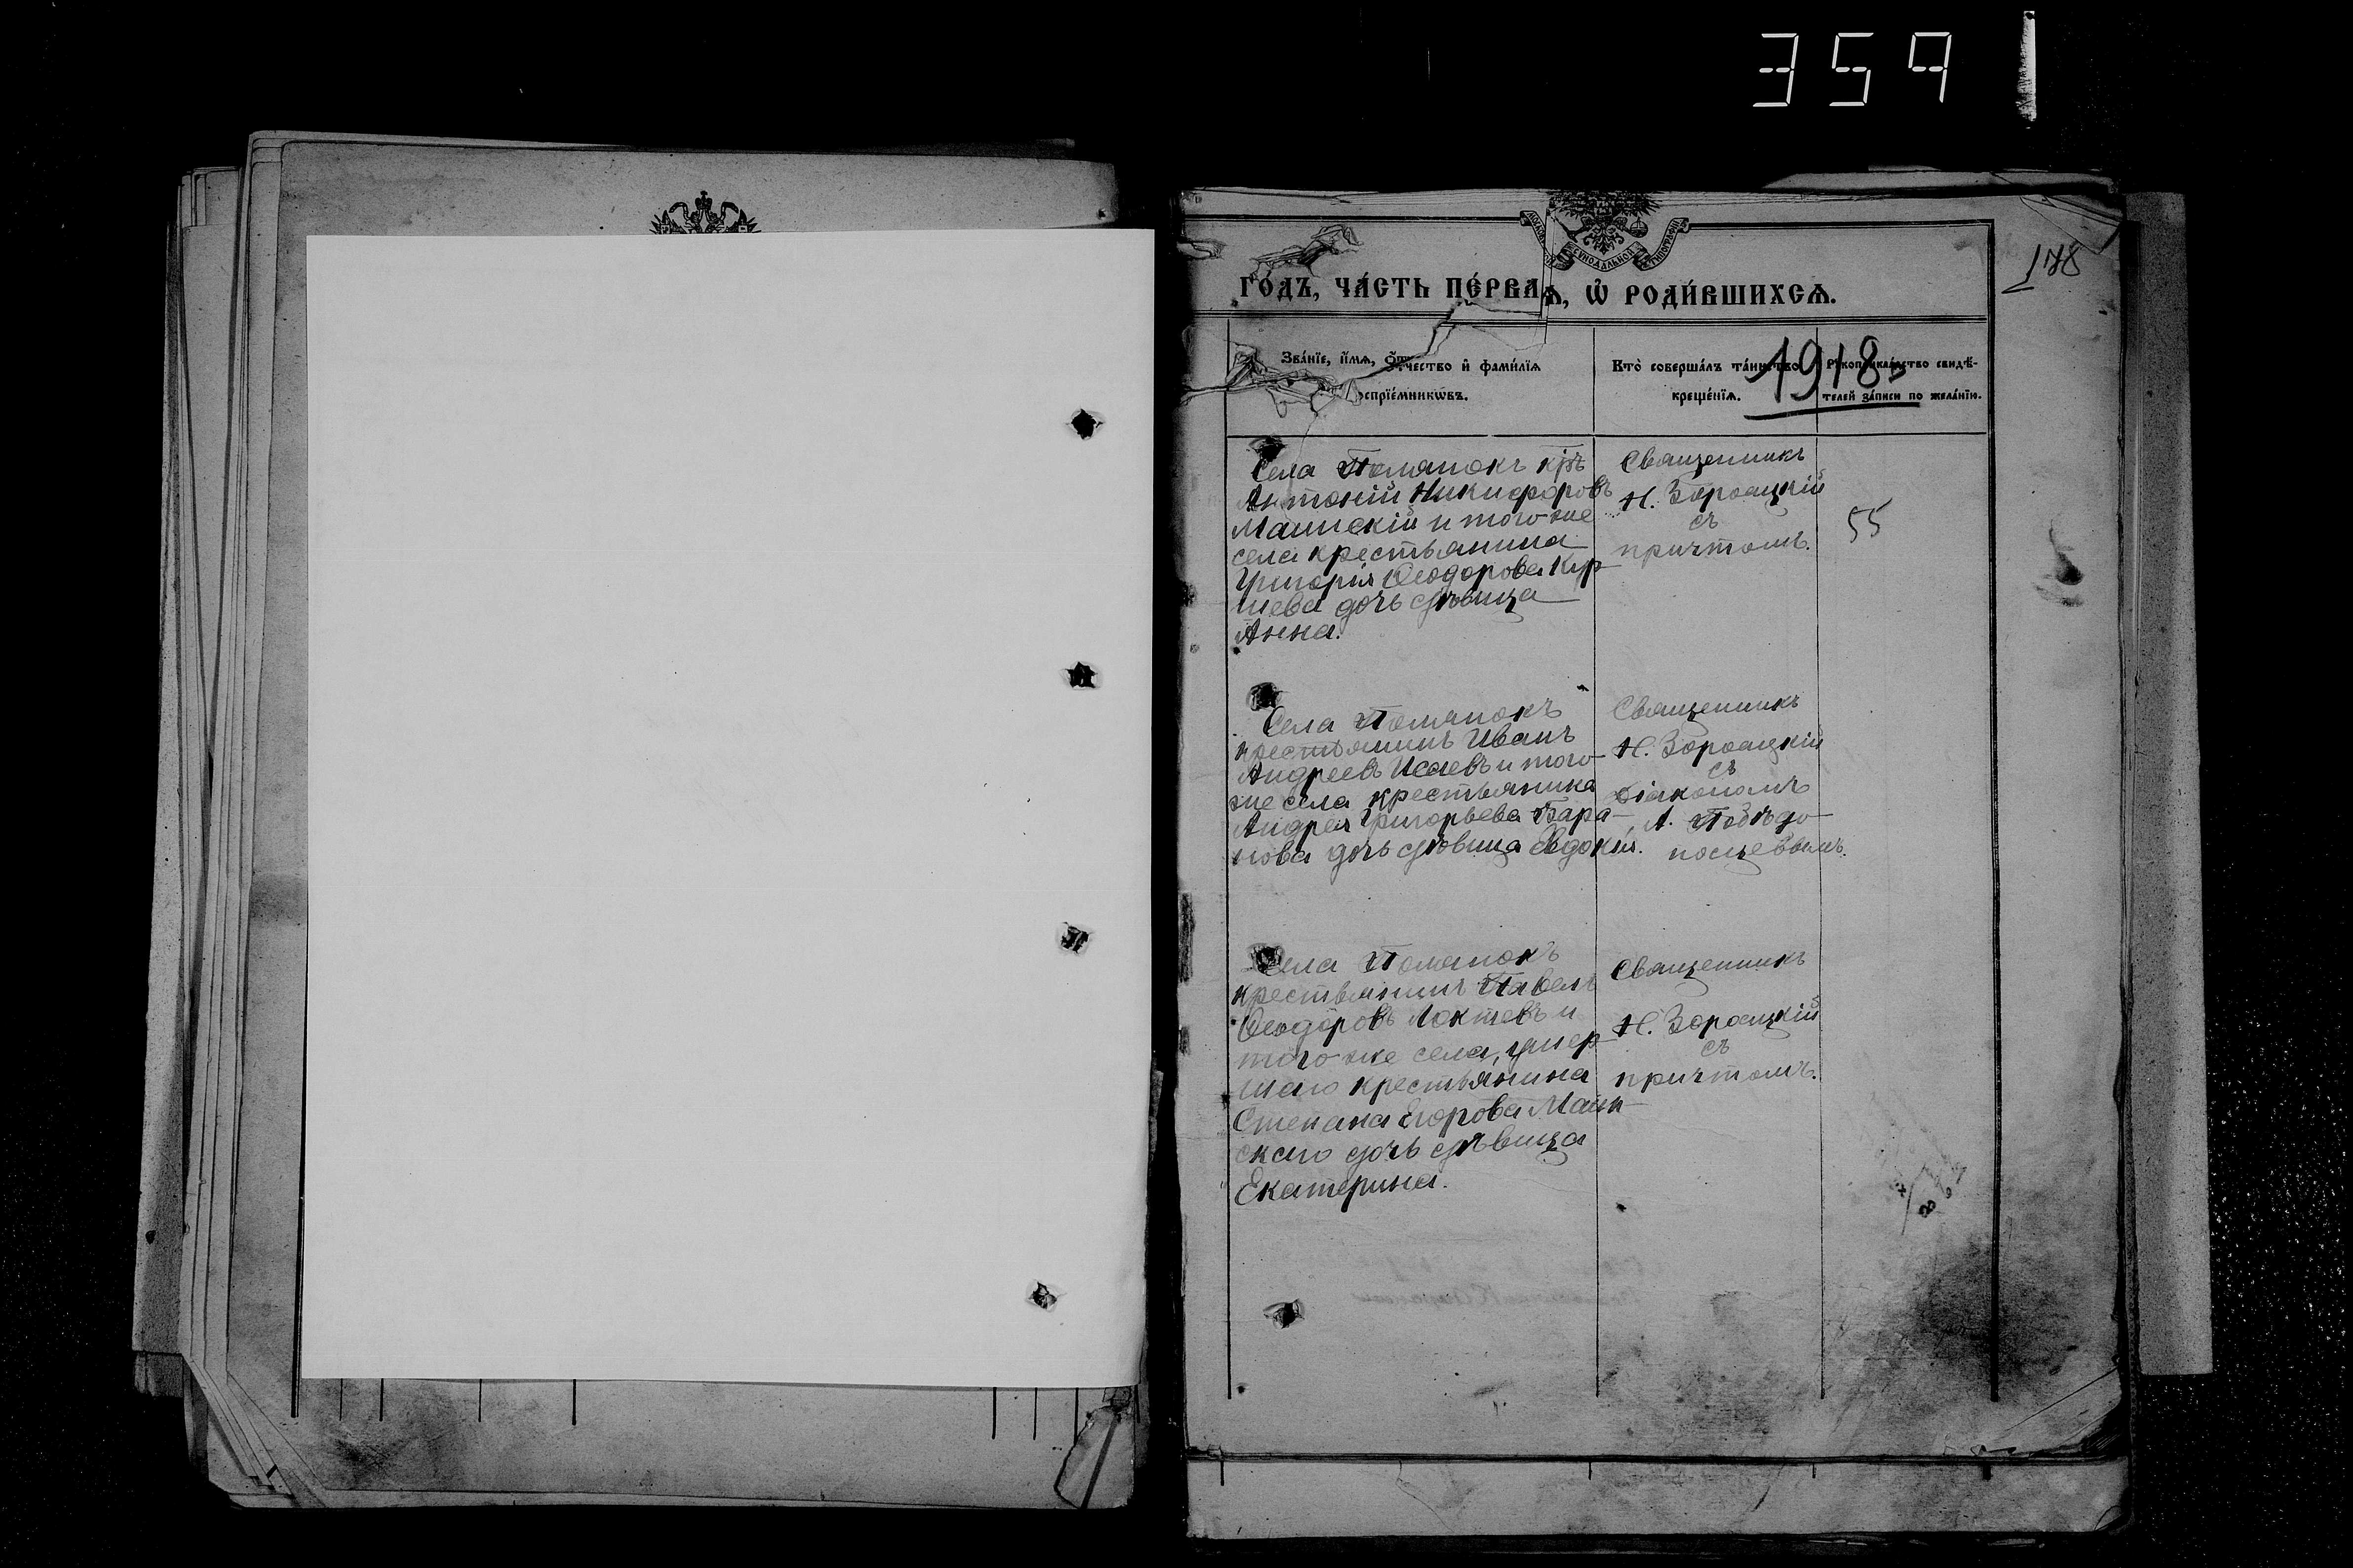 359
178
СѴНОДАЛЬНОЙ ТИПОГРАФІИ
ГО́ДЪ, ЧА́СТЬ ПЕ́РВАѦ, Ѡ҆ РОДИ́ВШИХСѦ.
Зва́нїе, и҆́мѧ, ѻ҆́тчество и҆ фами́лїѧ
воспрїе́мникѡвъ.
Кто̀ соверша́лъ та́инство
креще́нїѧ.
1918
Рꙋкоприкла́дство свидѣ́-
телей за́писи по жела́нїю.
Села Помянокъ кр.
Антоній Никифоровъ
Маинскій и того же
села крестьянина
Григорія Ѳеодорова Кур-
шева дочь дѣвица
Анна.
Священникъ
Н. Зороацкій
съ
причтомъ.
55
Села Помянокъ
крестьянинъ Иванъ
Андреевъ Исаевъ и того-
же села крестьянина
Андрея Григорьева Бара-
нова дочь дѣвица Евдокія.
Священникъ
Н. Зороацкій
съ
діакономъ
А. Побѣдо-
носцевымъ.
Села Помянокъ
крестьянинъ Павелъ
Ѳеодоровъ Локтевъ и
того же села, умер-
шаго крестьянина
Степана Егорова Маин-
скаго дочь дѣвица
Екатерина.
Священникъ
Н. Зороацкій
съ
причтомъ.